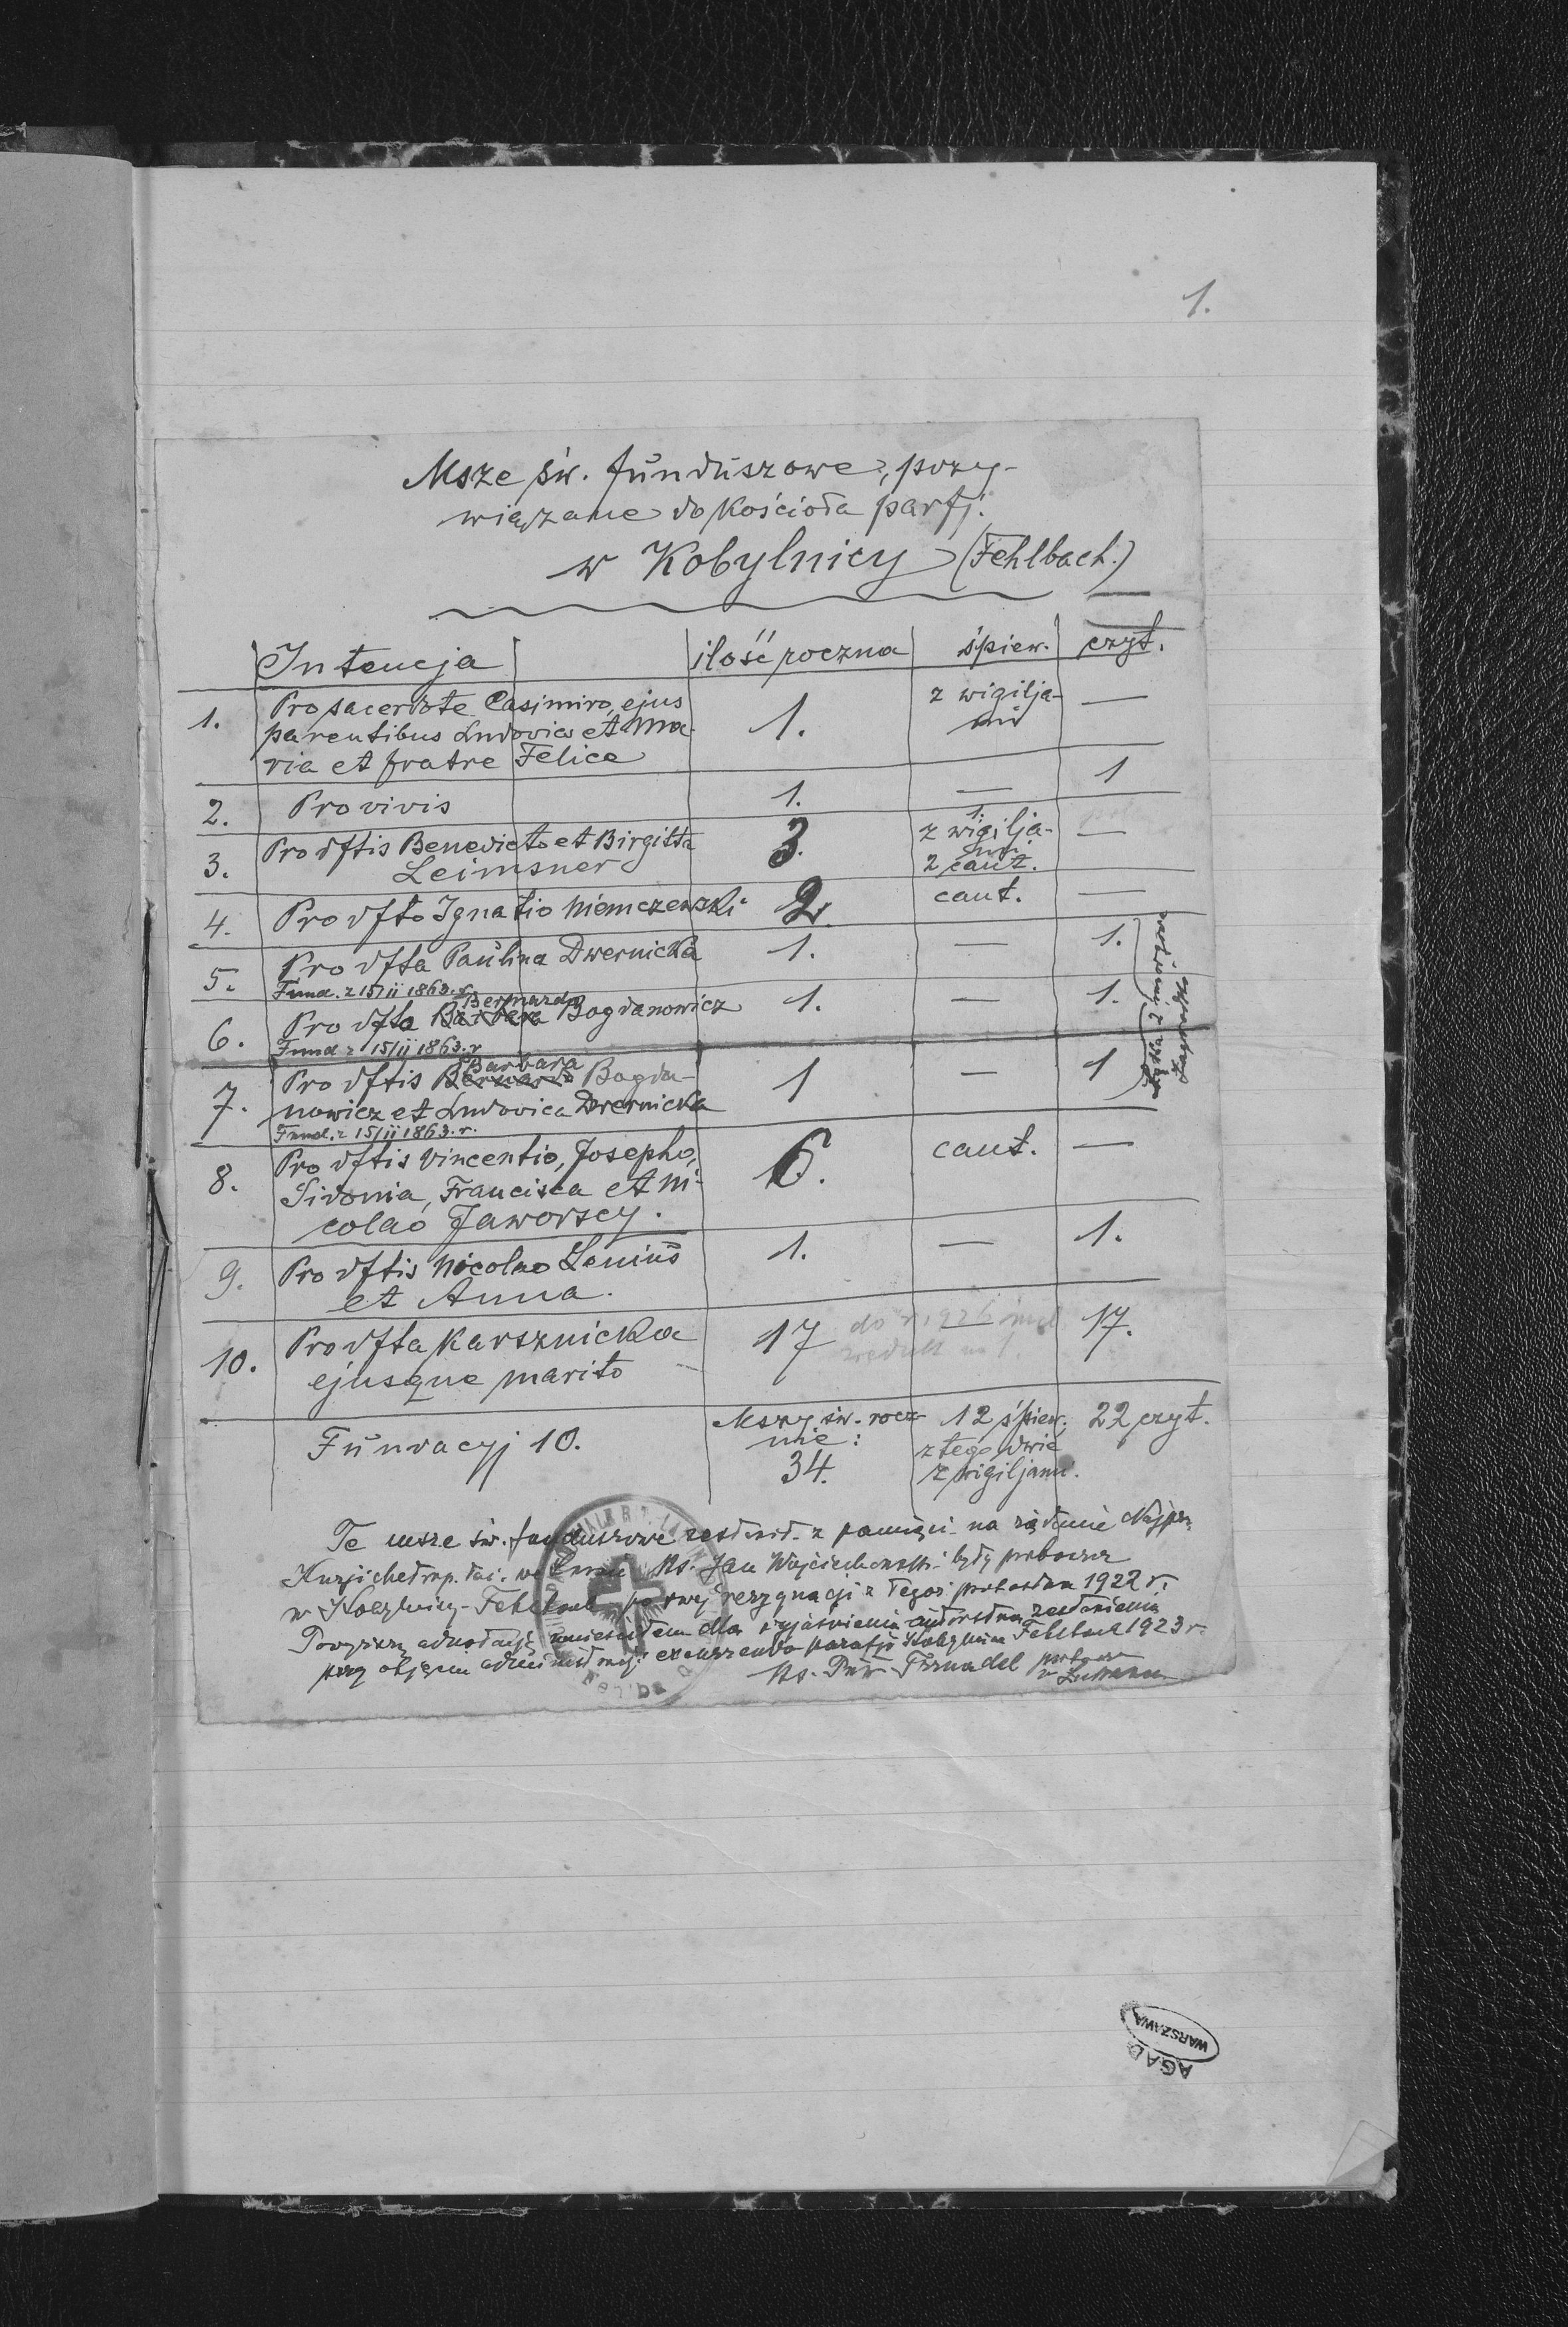 1.
Msze św. funduszowe, przy-
wiązane do Kościoła parfj.
w Kobylnicy (Fehlbach.)
Intencja ilość roczna śpiew. czyt.
1. Pro sacerdote Casimiro, ejus z wigilja-
parentibus Ludovico et Ma- 1. mi —
ria et fratre Felice
2. Pro vivis 1. — 1
3. Pro dftis Benedicto et Birgitta 3. 1. z wigilja- —
Leimsner mi
2 cant.
4. Pro dfto Ignatio Niemczewski 2. cant. —
5. Pro dfta Paulina Dwernicka 1. — 1.
Fund. z 15/II 1863. r.
Bernardo
6. Pro dfto Barbara Bogdanowicz 1. — 1.
Fund. z 15/II 1863. r.
Barbara
7. Pro dftis Bernardo Bogda- 1 — 1
nowicz et Ludovica Dwernicka
Fund. z 15/II 1863. r.
8. Pro dftis Vincentio, Josepho, 6. cant. —
Sidonia, Francisca et Ni-
colao Jaworscy.
9. Pro dftis Nicolao Lenius 1. — 1.
et Anna.
10. Pro dfta Karsznicka 17 do r. 1926 17.
ejusque marito
Fundacyj 10. Mszy św. rocz- 12 śpiew. 22 czyt.
nie: z tego dwie
34. z wigiljami.
Te msze św. funduszowe zestawił z pamięci na żądanie
Kurji Ks. Jan Wojciechowski były proboszcz
w Kobylnicy-Fehlbach po swej rezygnacji z tegoż probostwa 1922 r.
Powyższą adnotację umieściłem dla wyjaśnienia autorstwa zestawienia
przy objęciu administracji excurrendo parafji Kobylnica Fehlbach 1923 r.
Ks. proboszcz
AGAD
WARSZAWA